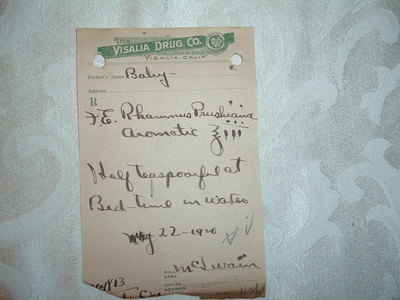 THE
VISALIA DRUG CO.
VISALIA, CALIF.
Patient's Name Baby-
Address
R
F.E. Rhammus Prushiana
Aromatic ℥iii
Half teaspoonful at
Bed-time in water
May 22-1920
McSwain
FULL NAME
OFFICE ADDRESS